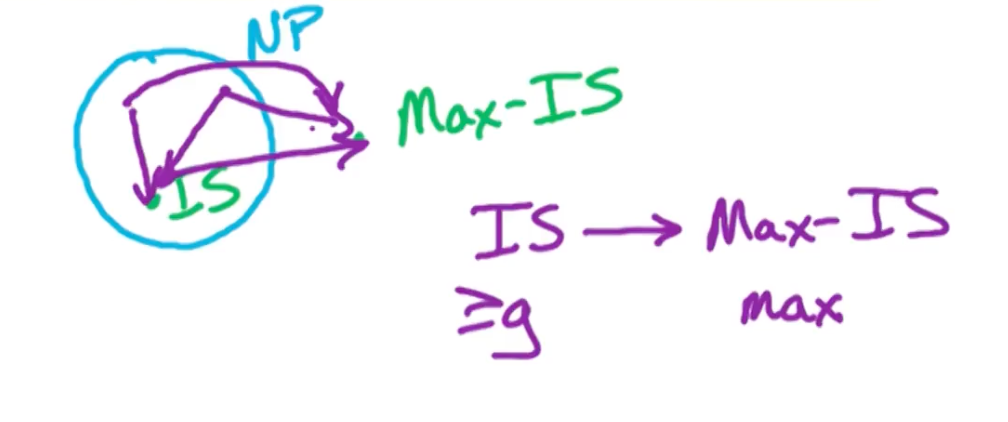 NP
Max-IS
IS
IS → Max-IS
≥g max